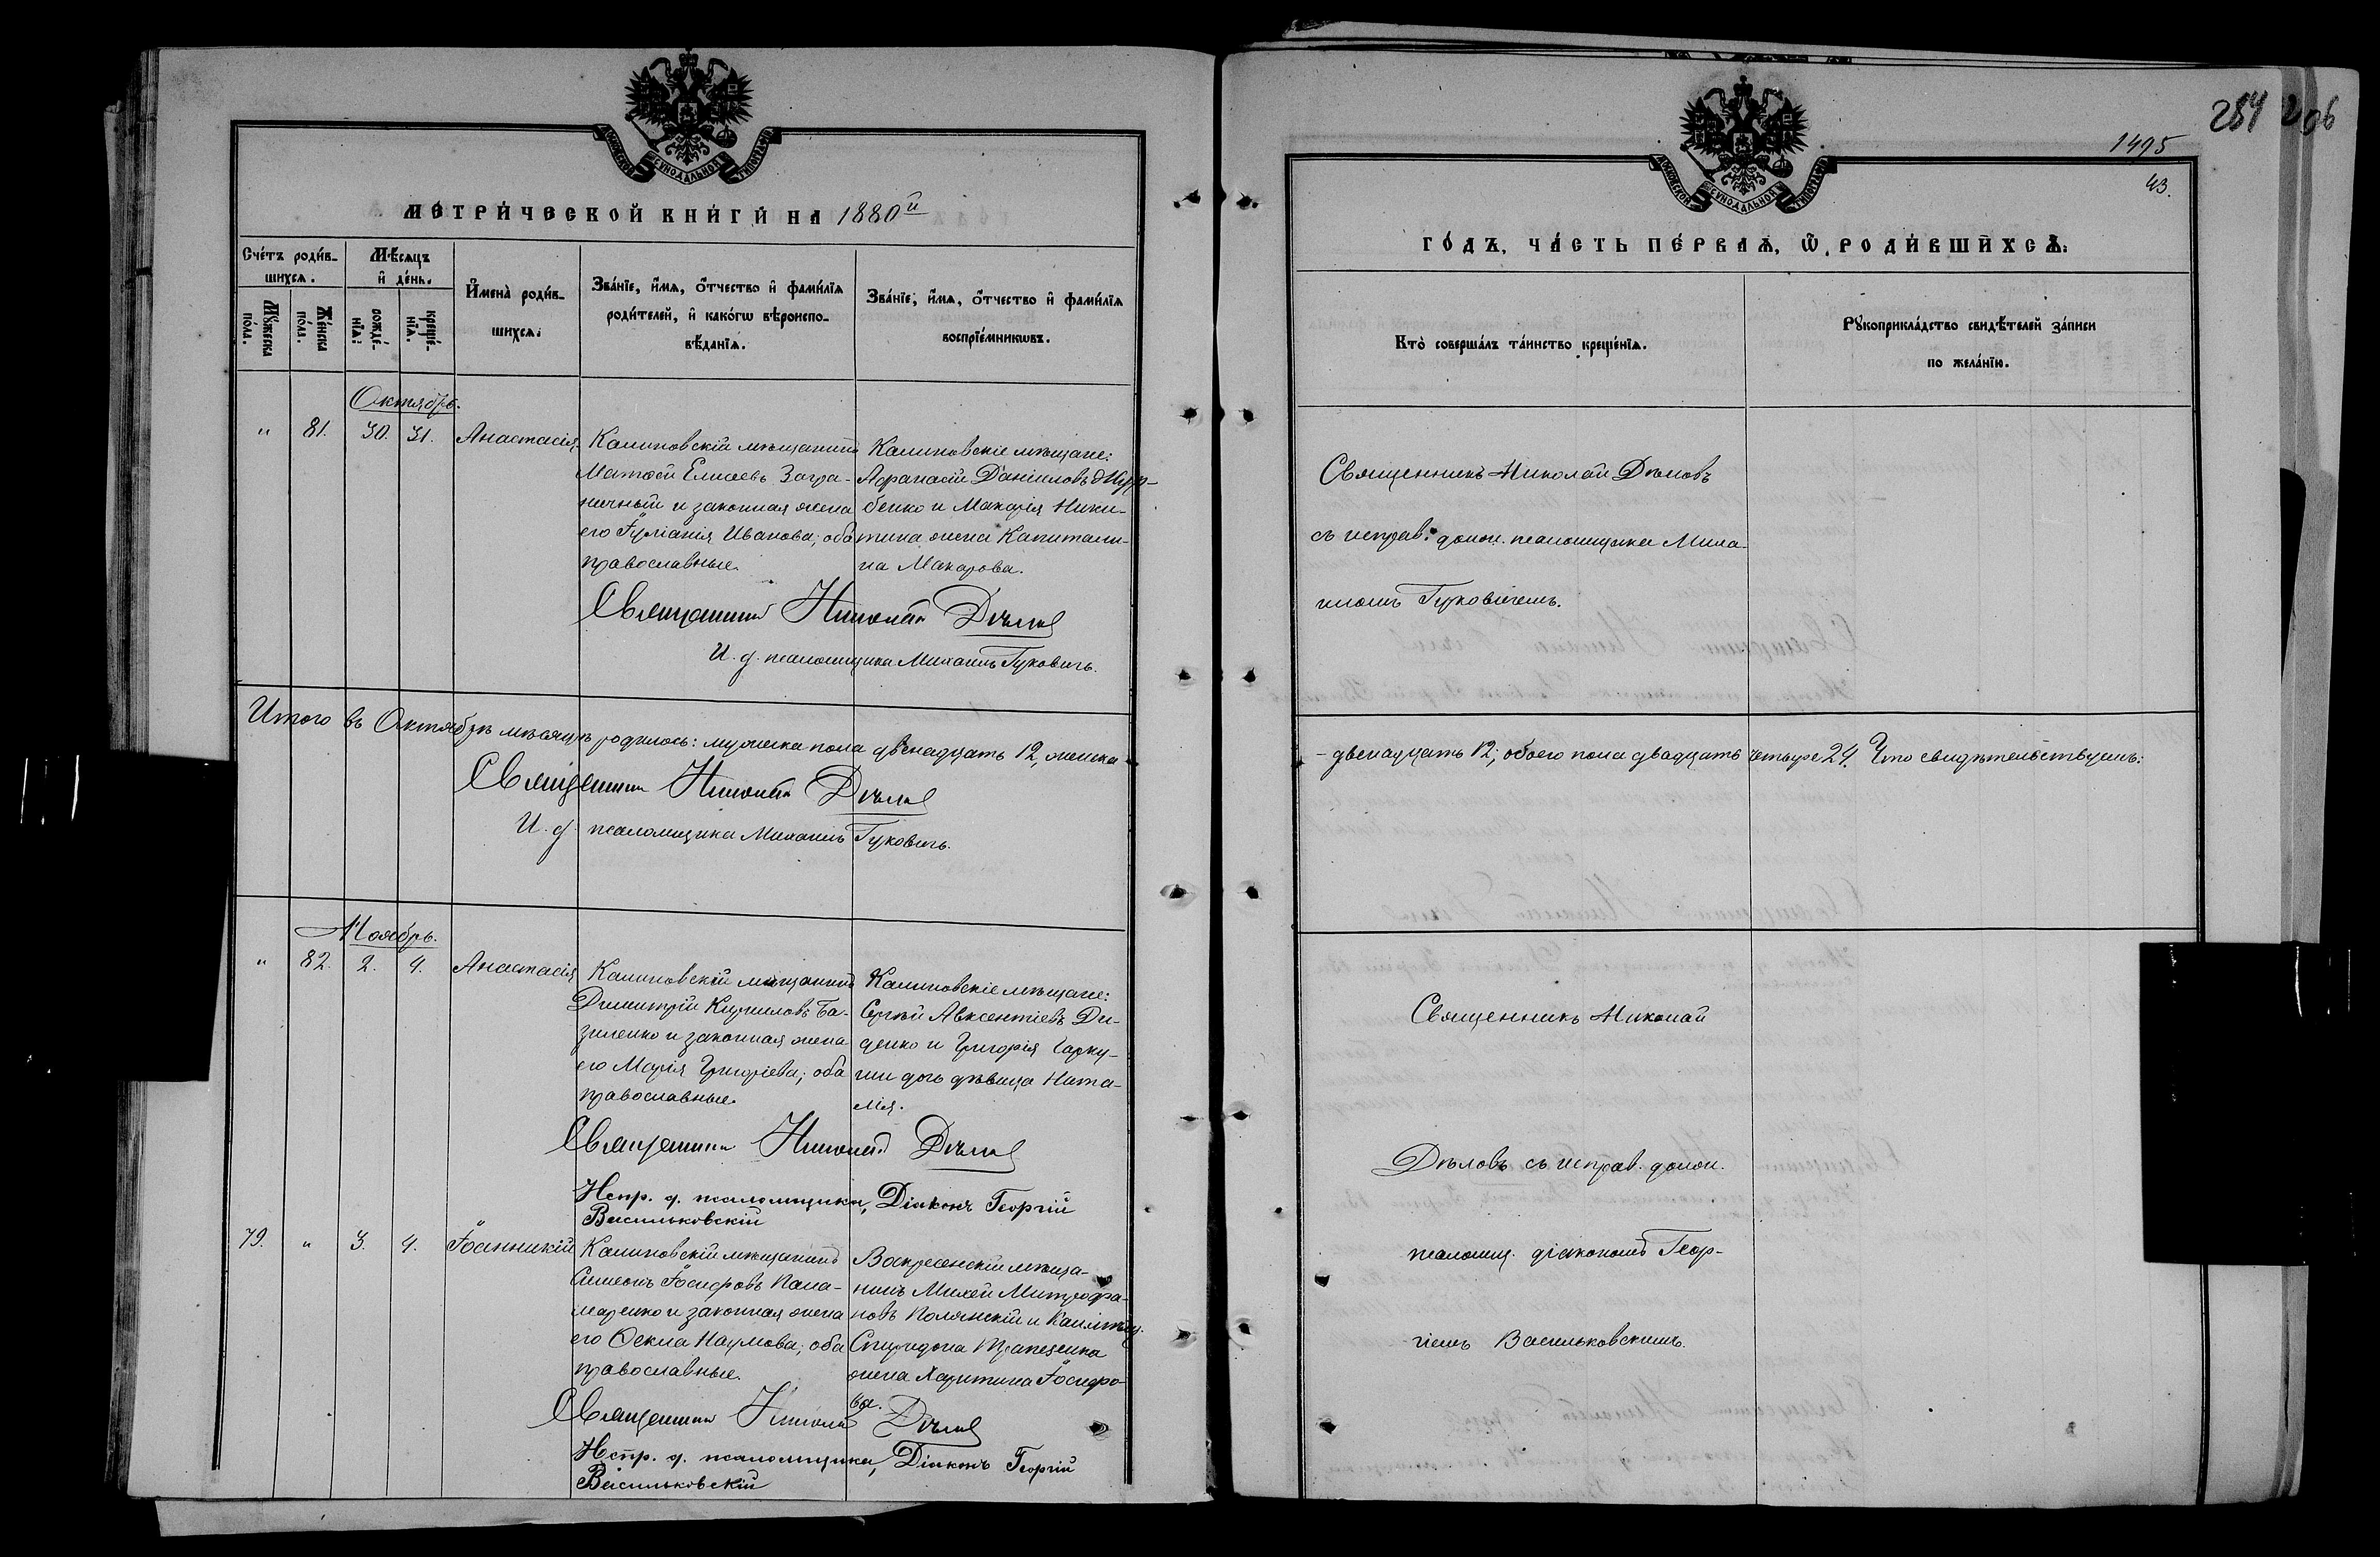 МОСКОВСКОЙ СѴНОДАЛЬНОЙ ТИПОГРАФІИ
МЕТРИ́ЧЕСКОЙ КНИ́ГИ НА 1880й
Сче́тъ роди́в-
шихсѧ.
Мꙋ́жеска по́ла.
Же́нска по́ла.
Мѣ́сѧцъ
и҆ де́нь.
рожде́-
нїѧ.
креще́-
нїѧ.
И҆мена̀ роди́в-
шихсѧ.
Зва́нїе, и҆́мѧ, ѻ҆́тчество и҆ фами́лїѧ
роди́телей, и҆ како́гѡ вѣроиспо-
вѣ́данїѧ.
Зва́нїе, и҆́мѧ, ѻ҆́тчество и҆ фами́лїѧ
воспрїе́мникѡвъ.
Октябрь.
" 81. 30. 31. Анастасія
Калиновскій мѣщанинъ
Матѳей Елисеевъ Загра-
ничный и законная жена
его Іуліанія Иванова; оба
православные.
Калиновскіе мѣщане:
Аѳанасій Даніиловъ
бенко и Макарія Ники-
тина жена Капитали-
на Макарова.
Священникъ Николай Дѣловъ
И. д. псаломщика Михаилъ Гуковичъ.
Итого въ Октябрѣ мѣсяцѣ родилось: мужеска пола двѣнадцать 12, женска
Священникъ Николай Дѣловъ
И. д. псаломщика Михаилъ Гуковичъ.
Ноябрь.
" 82. 2. 4. Анастасія
Калиновскій мѣщанинъ
Димитрій Кириловъ Ба-
зиленко и законная жена
его Марія Григоріева; оба
православные.
Калиновскіе мѣщане:
Сергѣй Авксентіевъ Ди-
денко и Григорія Гарку-
ши дочь дѣвица Ната-
лія.
Священникъ Николай Дѣловъ
Испр. д. псаломщика, Діаконъ Георгій
Васильковскій
79. " 3. 4. Іоанникій
Калиновскій мѣщанинъ
Симеонъ Іосифовъ Пана-
маренко и законная жена
его Ѳекла Наумова; оба
православные.
Воскресенскій мѣща-
нинъ Михей Митрофа-
новъ Полянскій и
Спиридона Трапезенка
жена Харитина Іосифо-
ва.
Священникъ Николай Дѣловъ
Испр. д. псаломщика, Діаконъ Георгій
Васильковскій
284
1495
43.
МОСКОВСКОЙ СѴНОДАЛЬНОЙ ТИПОГРАФІИ
ГО́ДЪ, ЧА́СТЬ ПЕ́РВАѦ, Ѡ҆ РОДИ́ВШИХСѦ:
Кто̀ соверша́лъ та́инство креще́нїѧ.
Рꙋкоприкла́дство свидѣ́телей за́писи
по жела́нїю.
Священникъ Николай Дѣловъ
съ исправ. должн. псаломщика Миха-
иломъ Гуковичемъ.
- двенадцать 12; обоего пола двадцать четыре 24. Что свидѣтельствуемъ:
Священникъ Николай
Дѣловъ съ исправ. должн.
псаломщ. діакономъ Геор-
гіемъ Васильковскимъ.